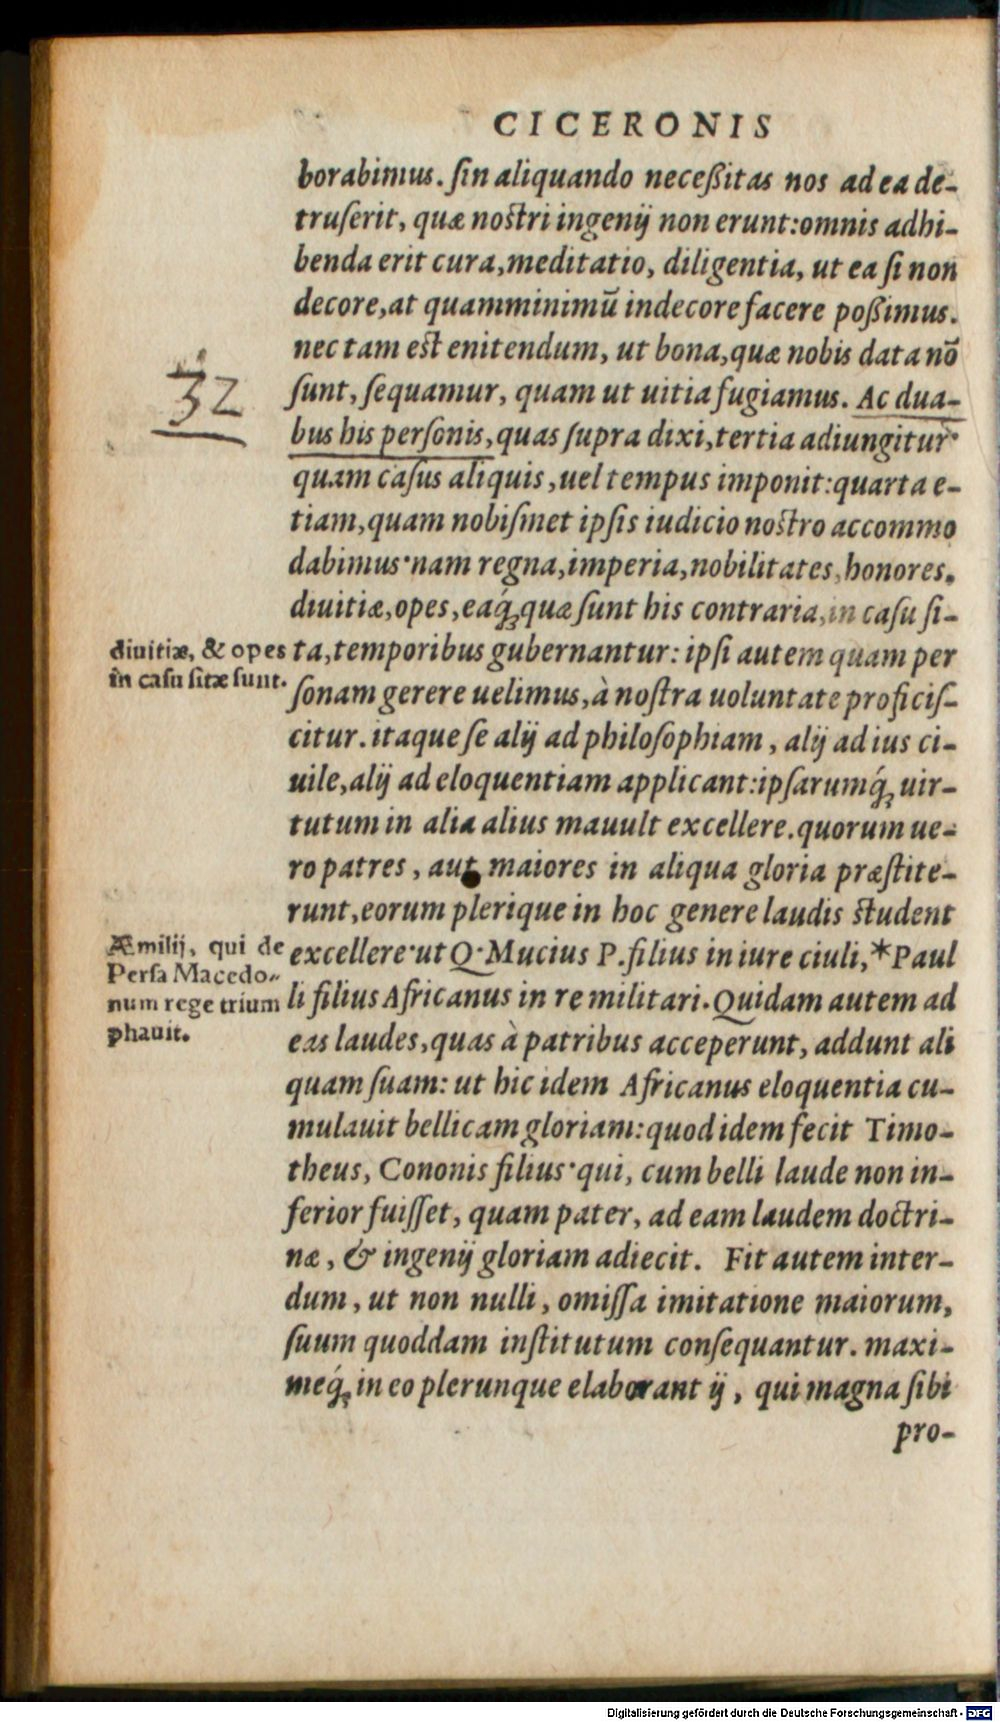 CICERONIS
borabimus. ſin aliquando neceßitas nos ad ea de-
truſerit, quæ noſtri ingenij non erunt: omnis adhi-
benda erit cura, meditatio, diligentia, ut ea ſi non
decore, at quamminimũ indecore facere poßimus.
nec tam eſt enitendum, ut bona, quæ nobis data nõ
ſunt, ſequamur, quam ut uitia fugiamus. Ac dua-
32
bus his perſonis, quas ſupra dixi, tertia adiungitur·
quam caſus aliquis, uel tempus imponit: quarta e-
tiam, quam nobiſmet ipſis iudicio noſtro accommo
dabimus· nam regna, imperia, nobilitates, honores,
diuitiæ, opes, eaq́;, quæ ſunt his contraria, in caſu ſi-
diuitiæ, & opes
in caſu ſitæ ſunt.
ta, temporibus gubernantur: ipſi autem quam per
ſonam gerere uelimus, à noſtra uoluntate proficiſ-
citur. itaque ſe alij ad philoſophiam, alij ad ius ci-
uile, alij ad eloquentiam applicant: ipſarumq́; uir-
tutum in alia alius mauult excellere. quorum ue-
ro patres, aut maiores in aliqua gloria præſtite-
runt, eorum plerique in hoc genere laudis ſtudent
Æmilij, qui de
Perſa Macedo-
num rege trium
phauit.
excellere· ut Q· Mucius P. filius in iure ciuli, *Paul
li filius Africanus in re militari. Quidam autem ad
eas laudes, quas à patribus acceperunt, addunt ali
quam ſuam: ut hic idem Africanus eloquentia cu-
mulauit bellicam gloriam: quod idem fecit Timo-
theus, Cononis filius· qui, cum belli laude non in-
ferior fuiſſet, quam pater, ad eam laudem doctri-
næ, & ingenij gloriam adiecit. Fit autem inter-
dum, ut non nulli, omiſſa imitatione maiorum,
ſuum quoddam inſtitutum conſequantur. maxi-
meq́; in eo plerunque elaborant ij, qui magna ſibi
pro-
Digitalisierung gefördert durch die Deutsche Forschungsgemeinschaft - DFG